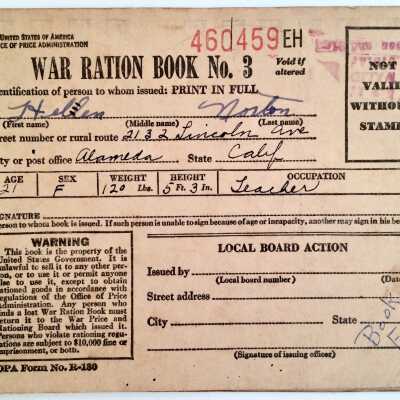 UNITED STATES OF AMERICA
OFFICE OF PRICE ADMINISTRATION
460459 EH
WAR RATION BOOK No. 3
Void if altered
Identification of person to whom issued: PRINT IN FULL
Hellen Norton
(First name) (Middle name) (Last name)
Street number or rural route 2132 Lincoln Ave
City or post office Alameda State Calif
AGE SEX WEIGHT HEIGHT OCCUPATION
21 F 120 Lbs. 5 Ft. 3 In. Teacher
SIGNATURE
(Person to whom book is issued. If such person is unable to sign because of age or incapacity, another may sign in his be
NOT
VALID
WITHOUT
STAMP
WARNING
This book is the property of the
United States Government. It is
unlawful to sell it to any other per-
son, or to use it or permit anyone
else to use it, except to obtain
rationed goods in accordance with
regulations of the Office of Price
Administration. Any person who
finds a lost War Ration Book must
return it to the War Price and
Rationing Board which issued it.
Persons who violate rationing regu-
lations are subject to $10,000 fine or
imprisonment, or both.
LOCAL BOARD ACTION
Issued by
(Local board number) (Date
Street address
City State
(Signature of issuing officer)
Book
OPA Form No. R-130